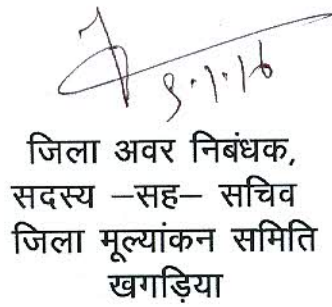 9.1.16
जिला अवर निबंधक,
सदस्य –सह– सचिव
जिला मूल्यांकन समिति
खगड़िया